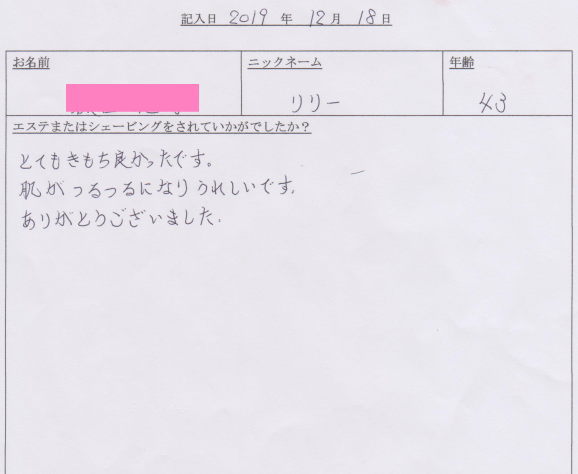 記入日 2019 年 12月 18日
お名前 ニックネーム 年齢
リリー 43
エステまたはシェービングをされていかがでしたか？
とてもきもち良かったです。
肌がつるつるになりうれしいです。
ありがとうございました.